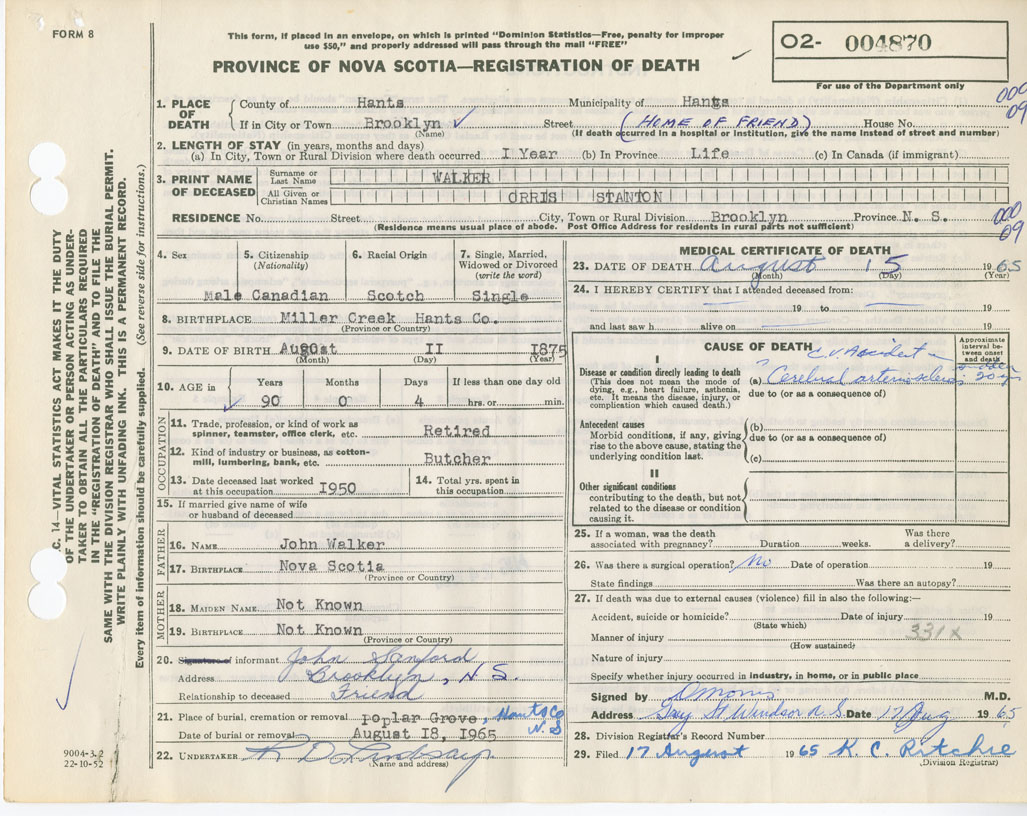 FORM 8
This form, if placed in an envelope, on which is printed "Dominion Statistics—Free, penalty for improper
use $50," and properly addressed will pass through the mail "FREE"
PROVINCE OF NOVA SCOTIA—REGISTRATION OF DEATH
02- 004870
For use of the Department only
000
09
1. PLACE OF DEATH
County of Hants Municipality of Hants
If in City or Town Brooklyn ✓ Street (HOME OF FRIEND) House No.
(Name) (If death occurred in a hospital or institution, give the name instead of street and number)
2. LENGTH OF STAY (in years, months and days)
(a) In City, Town or Rural Division where death occurred I Year (b) In Province Life (c) In Canada (if immigrant)
3. PRINT NAME OF DECEASED
Surname or Last Name WALKER
All Given or Christian Names ORRIS STANTON
RESIDENCE No. Street City, Town or Rural Division Brooklyn Province N. S.
(Residence means usual place of abode. Post Office Address for residents in rural parts not sufficient)
000
09
4. Sex 5. Citizenship (Nationality) 6. Racial Origin 7. Single, Married, Widowed or Divorced (write the word)
Male Canadian Scotch Single
8. BIRTHPLACE Miller Creek Hants Co.
(Province or Country)
9. DATE OF BIRTH August II 1875
(Month) (Day) (Year)
10. AGE in Years Months Days If less than one day old
90 0 4 hrs. or min.
OCCUPATION
11. Trade, profession, or kind of work as
spinner, teamster, office clerk, etc. Retired
12. Kind of industry or business, as cotton-
mill, lumbering, bank, etc. Butcher
13. Date deceased last worked
at this occupation 1950
14. Total yrs. spent in
this occupation
15. If married give name of wife
or husband of deceased
FATHER
16. NAME John Walker
17. BIRTHPLACE Nova Scotia
(Province or Country)
MOTHER
18. MAIDEN NAME Not Known
19. BIRTHPLACE Not Known
(Province or Country)
20. Signature of informant John Sanford
Address Brooklyn, N. S.
Relationship to deceased Friend
21. Place of burial, cremation or removal Poplar Grove, Hants Co
N. S
Date of burial or removal August I8, I965
22. UNDERTAKER R D Lindsay
(Name and address)
MEDICAL CERTIFICATE OF DEATH
23. DATE OF DEATH August 15 1965
(Month) (Day) (Year)
24. I HEREBY CERTIFY that I attended deceased from:
19 to 19
and last saw h alive on 19
CAUSE OF DEATH
Approximate interval between onset and death
I
C.V. Accident
Disease or condition directly leading to death
(This does not mean the mode of
dying, e.g., heart failure, asthenia,
etc. It means the disease, injury, or
complication which caused death.)
(a) Cerebral
due to (or as a consequence of)
Antecedent causes
Morbid conditions, if any, giving
rise to the above cause, stating the
underlying condition last.
(b)
due to (or as a consequence of)
(c)
II
Other significant conditions
contributing to the death, but not
related to the disease or condition
causing it.
25. If a woman, was the death
associated with pregnancy? Duration weeks. Was there
a delivery?
26. Was there a surgical operation? No Date of operation 19
State findings Was there an autopsy?
27. If death was due to external causes (violence) fill in also the following:—
Accident, suicide or homicide? Date of injury 19
(State which)
331X
Manner of injury
(How sustained)
Nature of injury
Specify whether injury occurred in industry, in home, or in public place
Signed by M.D.
Address Gray St Windsor N.S. Date 17 Aug 1965
28. Division Registrar's Record Number
29. Filed 17 August 1965 K. C. Ritchie
(Division Registrar)
C. 14—VITAL STATISTICS ACT MAKES IT THE DUTY
OF THE UNDERTAKER OR PERSON ACTING AS UNDER-
TAKER TO OBTAIN ALL THE PARTICULARS REQUIRED
IN THE "REGISTRATION OF DEATH" AND TO FILE THE
SAME WITH THE DIVISION REGISTRAR WHO SHALL ISSUE THE BURIAL PERMIT.
WRITE PLAINLY WITH UNFADING INK. THIS IS A PERMANENT RECORD.
Every item of information should be carefully supplied. (See reverse side for instructions.)
9004-3.2
22-10-52